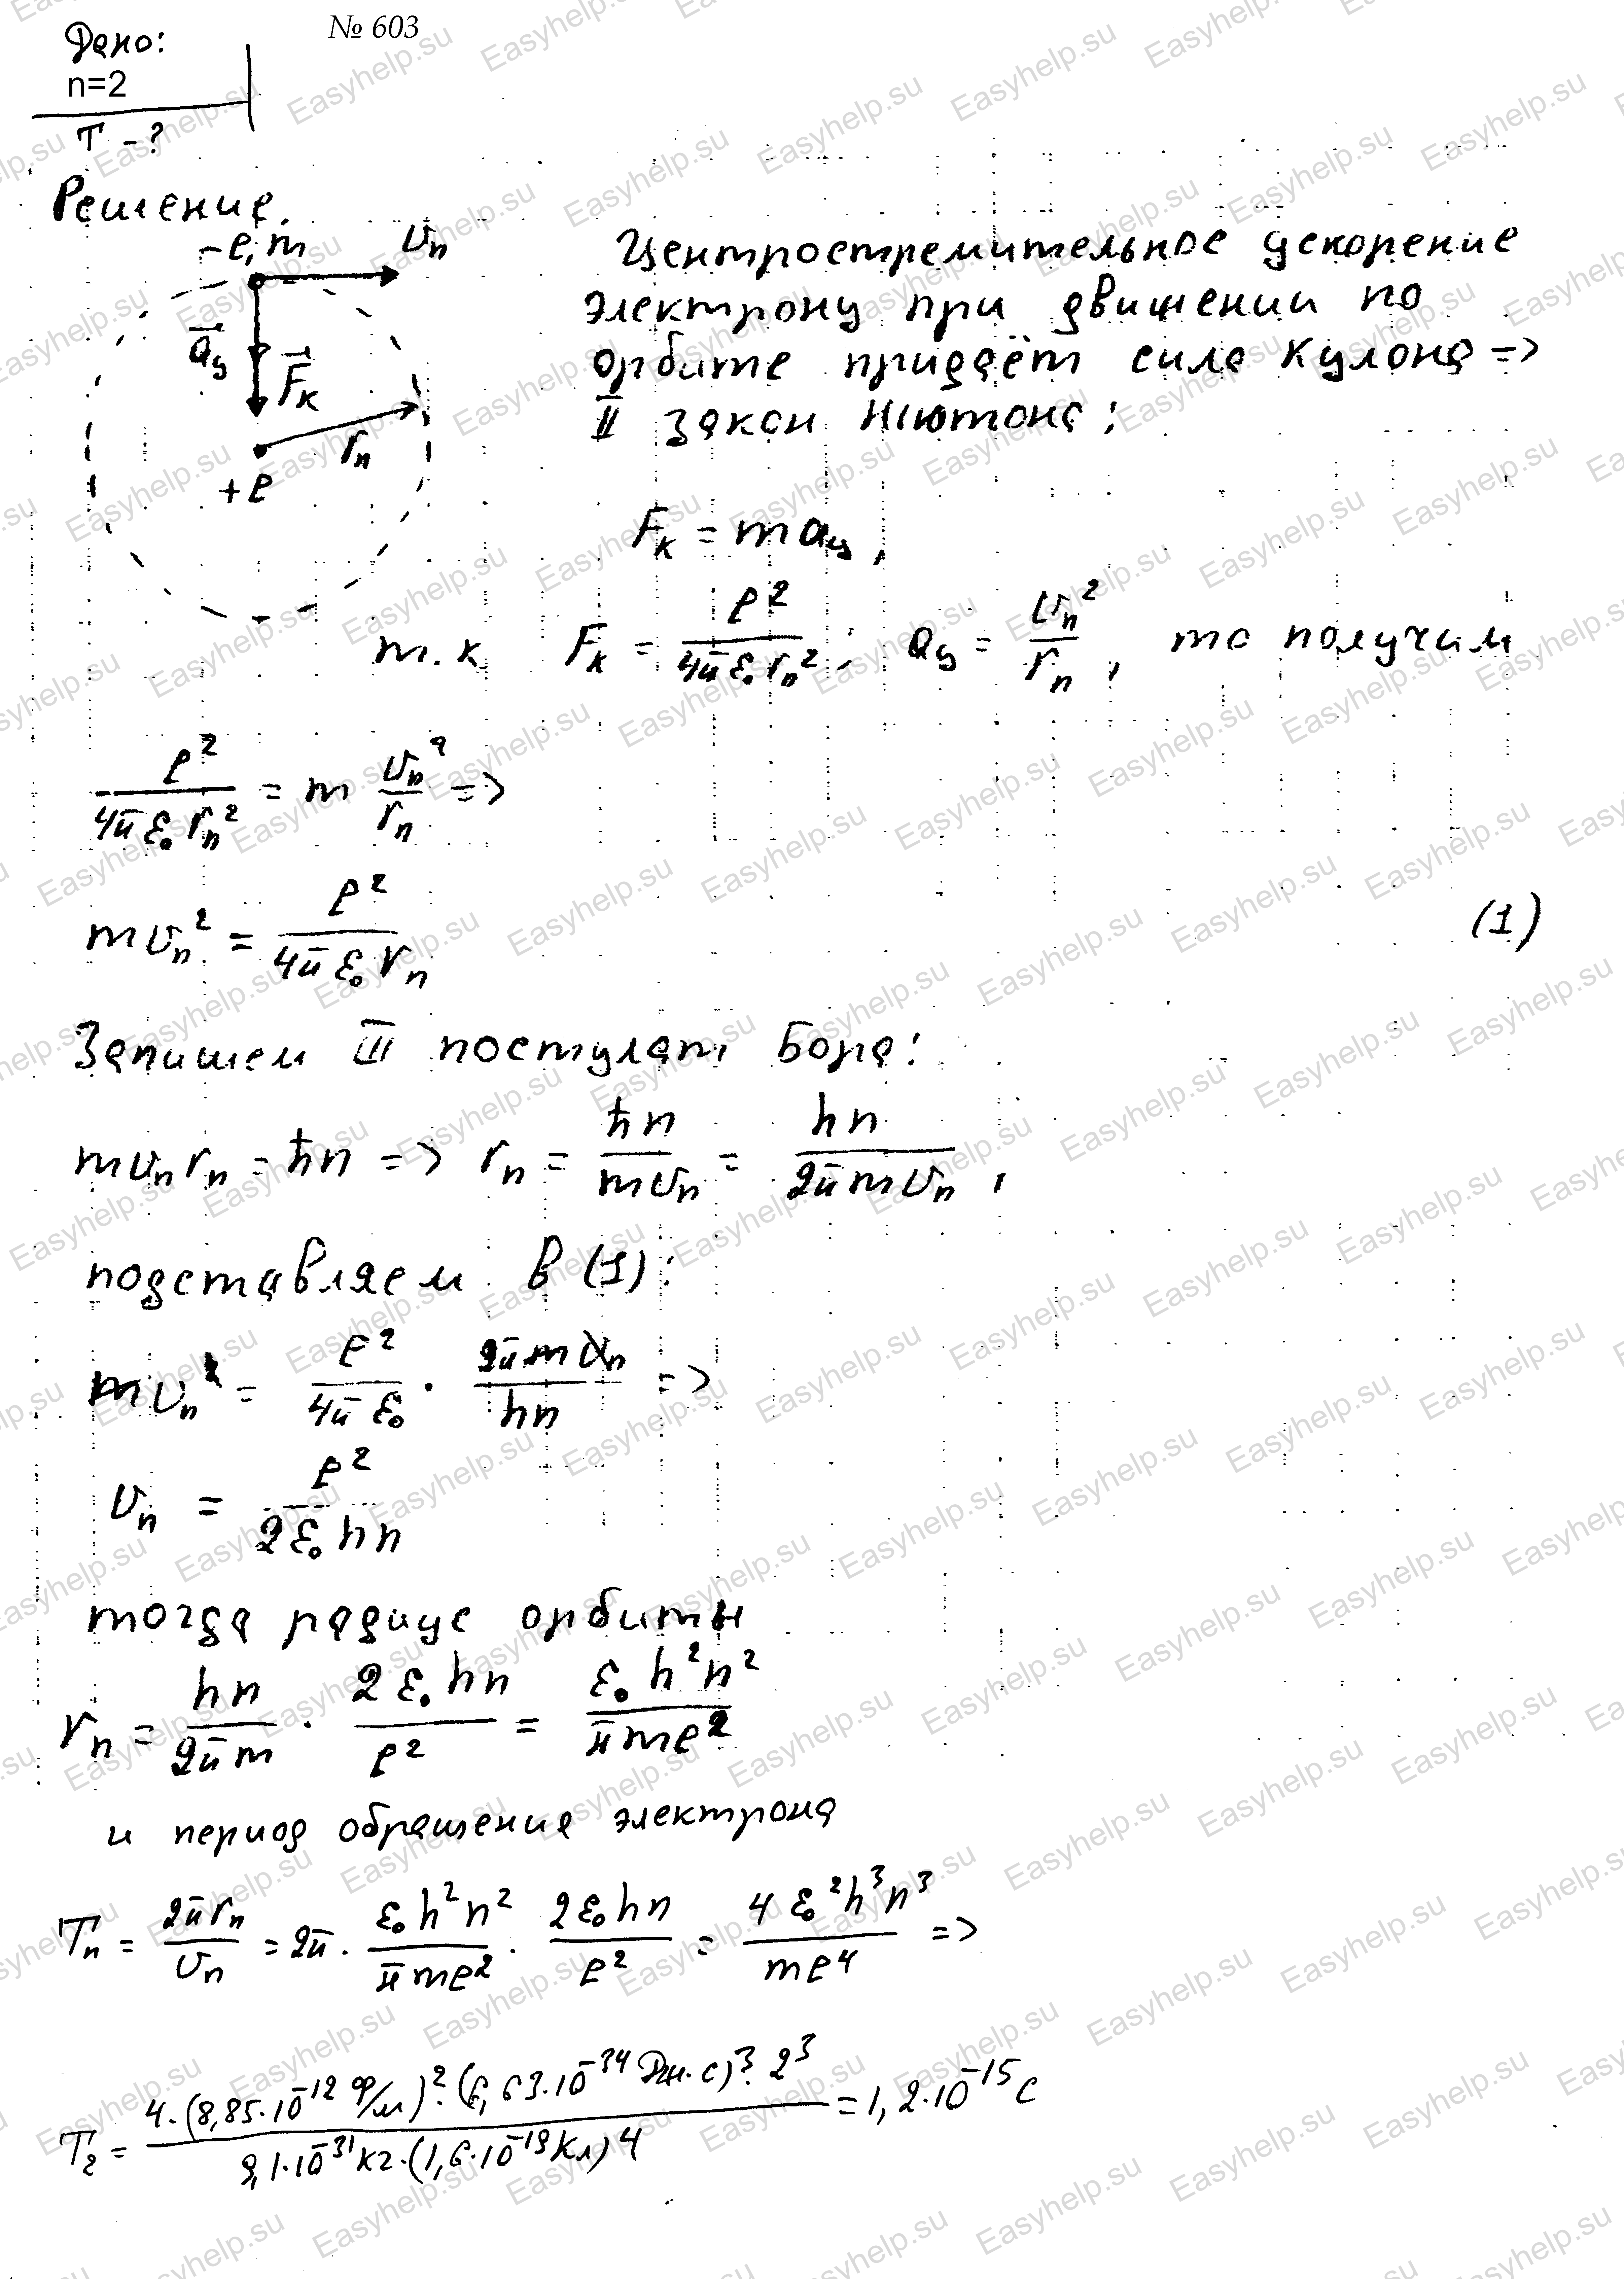 № 603
Дано:
n=2
T - ?
Решение.
-e, m
υₙ
a⃗ц
F⃗к
rₙ
+e
Центростремительное ускорение
электрону при движении по
орбите придаёт сила Кулона =>
II закон Ньютона:
Fк = maц,
т.к. Fк = e²/(4πε₀rₙ²); aц = υₙ²/rₙ, то получим
e²/(4πε₀rₙ²) = m υₙ²/rₙ =>
mυₙ² = e²/(4πε₀rₙ) (1)
Запишем III постулат Бора:
mυₙrₙ = ħn => rₙ = ħn/(mυₙ) = hn/(2πmυₙ),
подставляем в (1):
mυₙ² = e²/(4πε₀) · 2πmυₙ/(hn) =>
υₙ = e²/(2ε₀hn)
тогда радиус орбиты
rₙ = hn/(2πm) · 2ε₀hn/e² = ε₀h²n²/(πme²)
и период обращения электрона
Tₙ = 2πrₙ/υₙ = 2π · ε₀h²n²/(πme²) · 2ε₀hn/e² = 4ε₀²h³n³/(me⁴) =>
T₂ = 4·(8,85·10⁻¹² Ф/м)²·(6,63·10⁻³⁴ Дж·с)³·2³/(9,1·10⁻³¹ кг·(1,6·10⁻¹⁹ Кл)⁴) = 1,2·10⁻¹⁵ с
Easyhelp.su